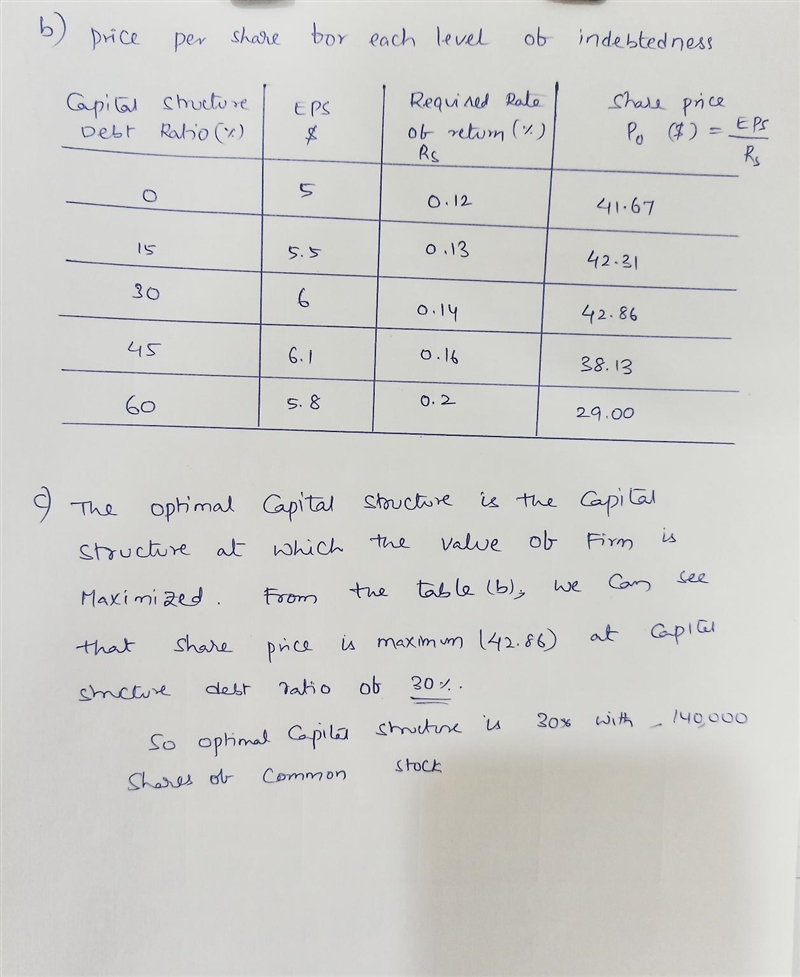 b) price per share for each level of indebtedness
Capital Structure Debt Ratio (%) | EPS $ | Required Rate of return (%) Rs | Share price P0 ($) = EPS / Rs
0 | 5 | 0.12 | 41.67
15 | 5.5 | 0.13 | 42.31
30 | 6 | 0.14 | 42.86
45 | 6.1 | 0.16 | 38.13
60 | 5.8 | 0.2 | 29.00
c) The optimal Capital structure is the Capital
structure at which the value of Firm is
Maximized. From the table (b), we can see
that share price is maximum (42.86) at capital
structure debt ratio of 30%.
So optimal Capital structure is 30% with 140,000
Shares of Common stock